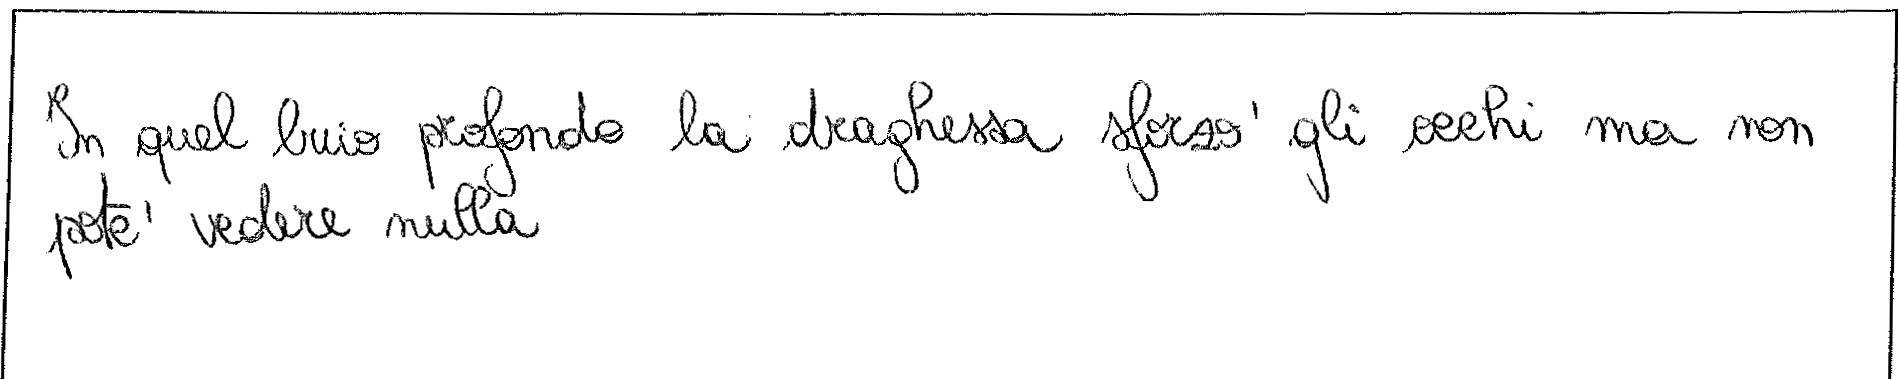 In quel buio profondo la draghessa sforzo' gli occhi ma non
pote' vedere nulla